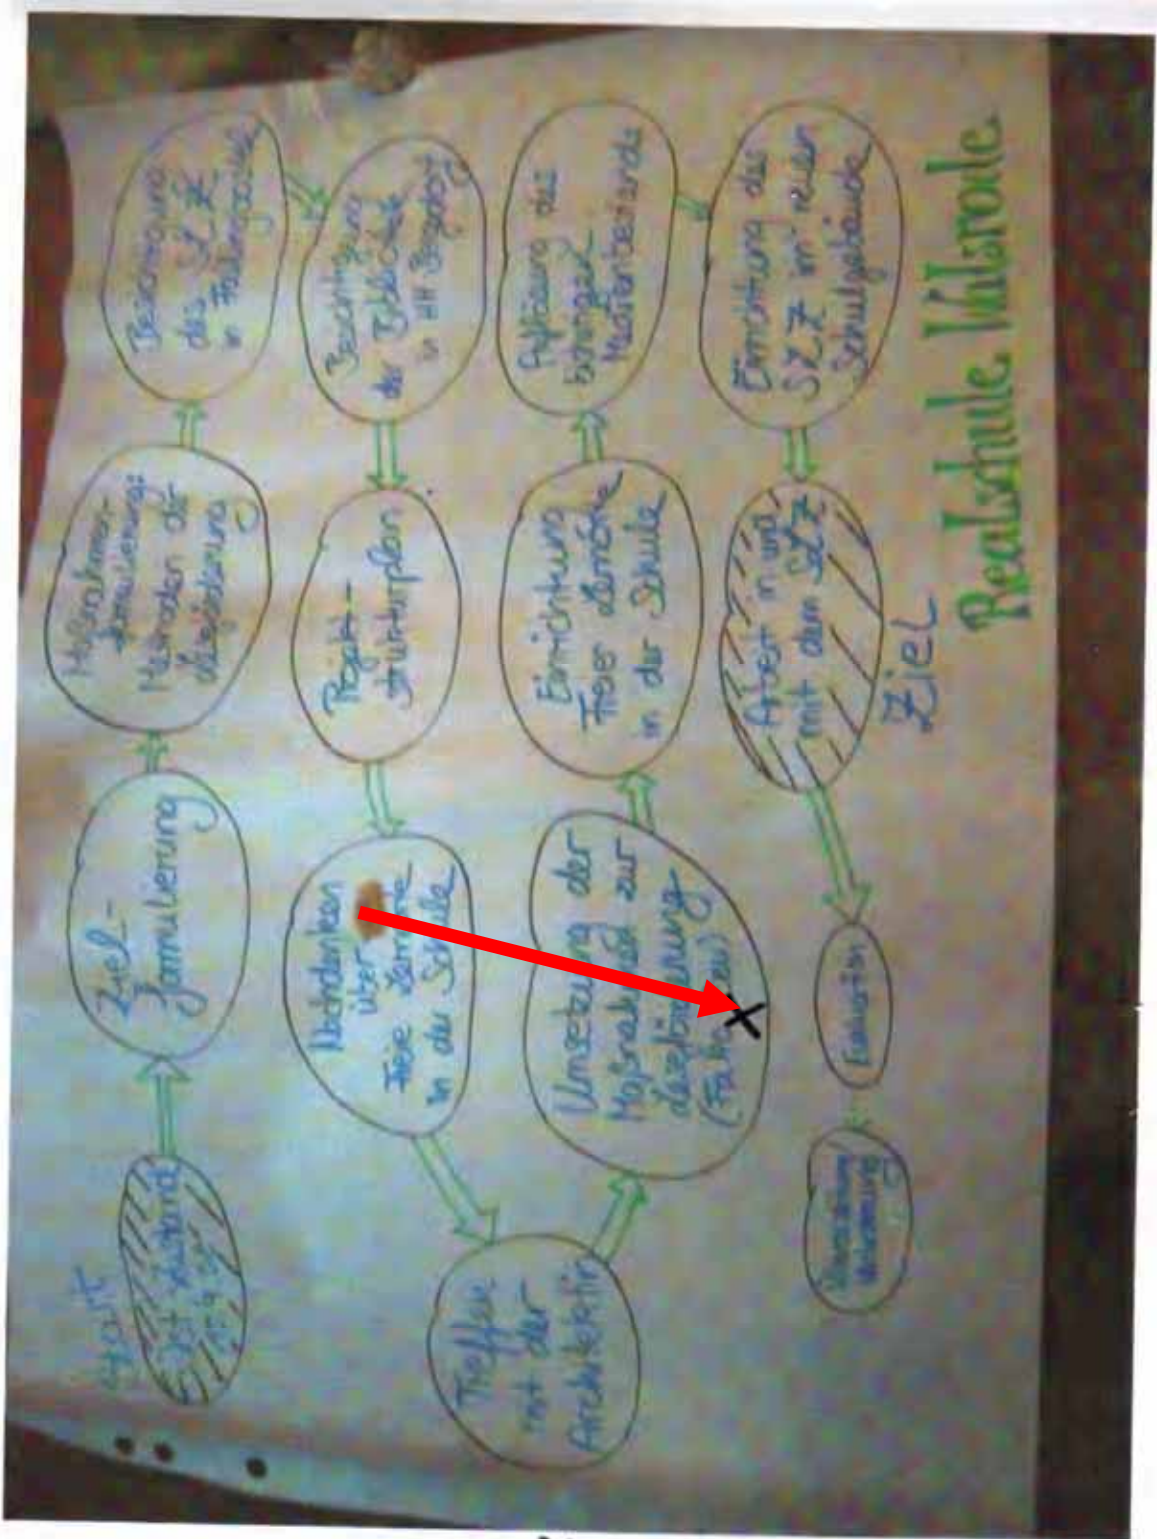 Start
Ist zustand
Ziel-
formulierung
Maßnahmen-
formulierung:
Methoden der
Leseförderung
Besichtigung
des SLZ
in Fallingbostel
Besichtigung
der Bibliothek
in HH Bergedorf
Projekt-
strukturplan
Nachdenken
über
Freie Lernorte
in der Schule
Treffen
mit der
Architektin
Umsetzung der
Maßnahmen zur
Leseförderung
Einrichtung
Freier Lernorte
in der Schule
Auflösung des
bisherigen
Medienbestands
Einrichtung des
SLZ im neuen
Schulgebäude
Arbeit in und
mit dem SLZ
Ziel
Evaluation
X
Realschule Walsrode